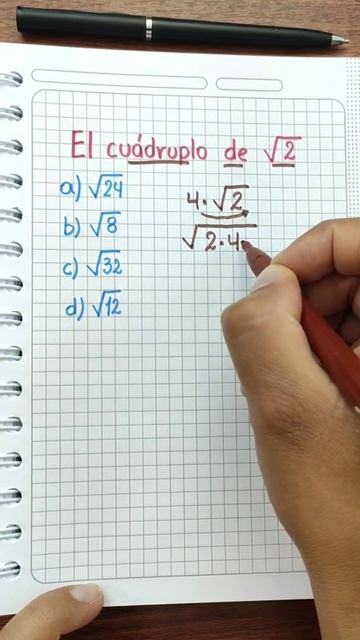 El cuádruplo de √2
a) √24
b) √8
c) √32
d) √12
4·√2
√2·4·